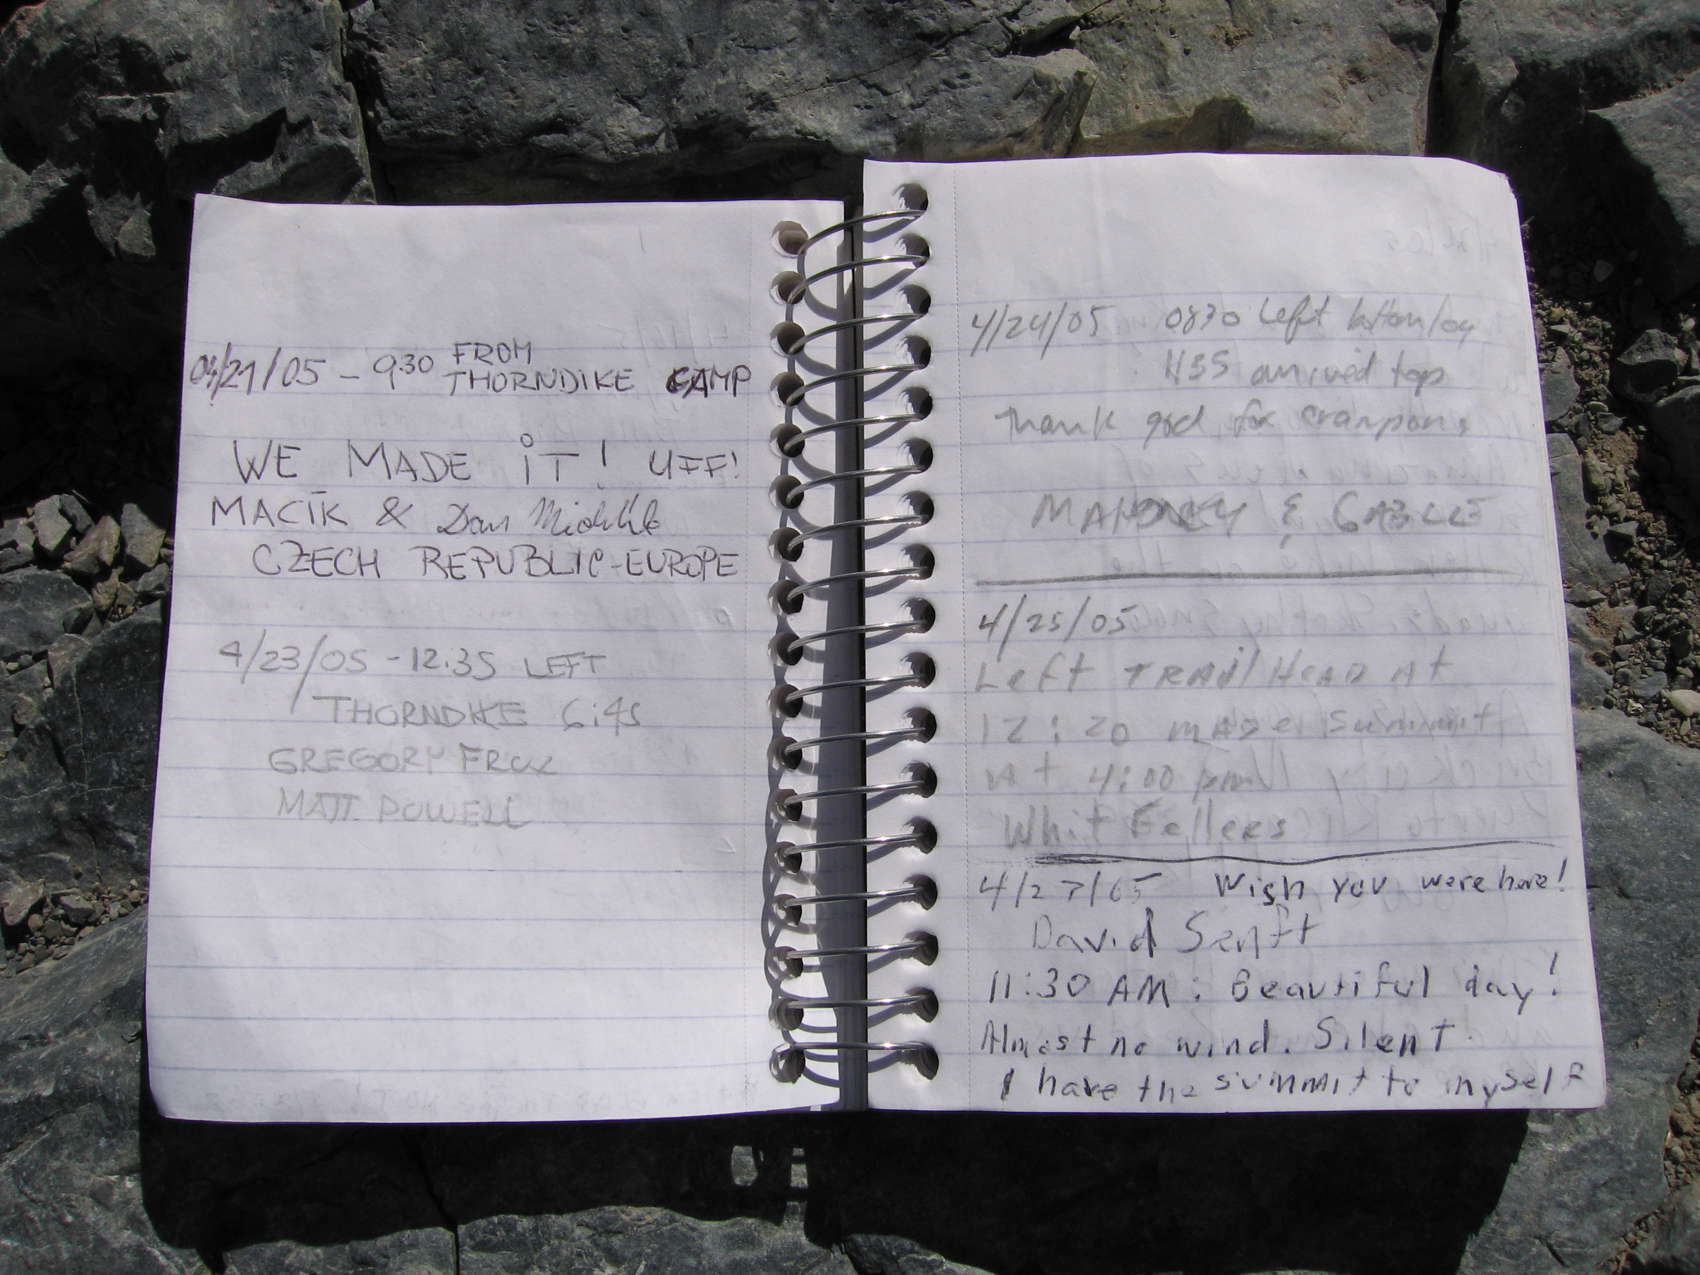 04/21/05 - 9:30 FROM
THORNDIKE CAMP
WE MADE iT! UFF!
MACÍK & Dan
CZECH REPUBLIC-EUROPE
4/23/05 - 12:35 LEFT
THORNDIKE 6:45
GREGORY
MATT POWELL
4/24/05 0830 Left
1155 arrived top
Thank god for crampons
MAHONEY & GABLE
4/25/05
Left TRAil HEAD At
12:20 MADE Summit
At 4:00 pm
Whit Fellers
4/27/05 Wish you were here!
David Senft
11:30 AM: Beautiful day!
Almost no wind. Silent.
I have the summit to myself